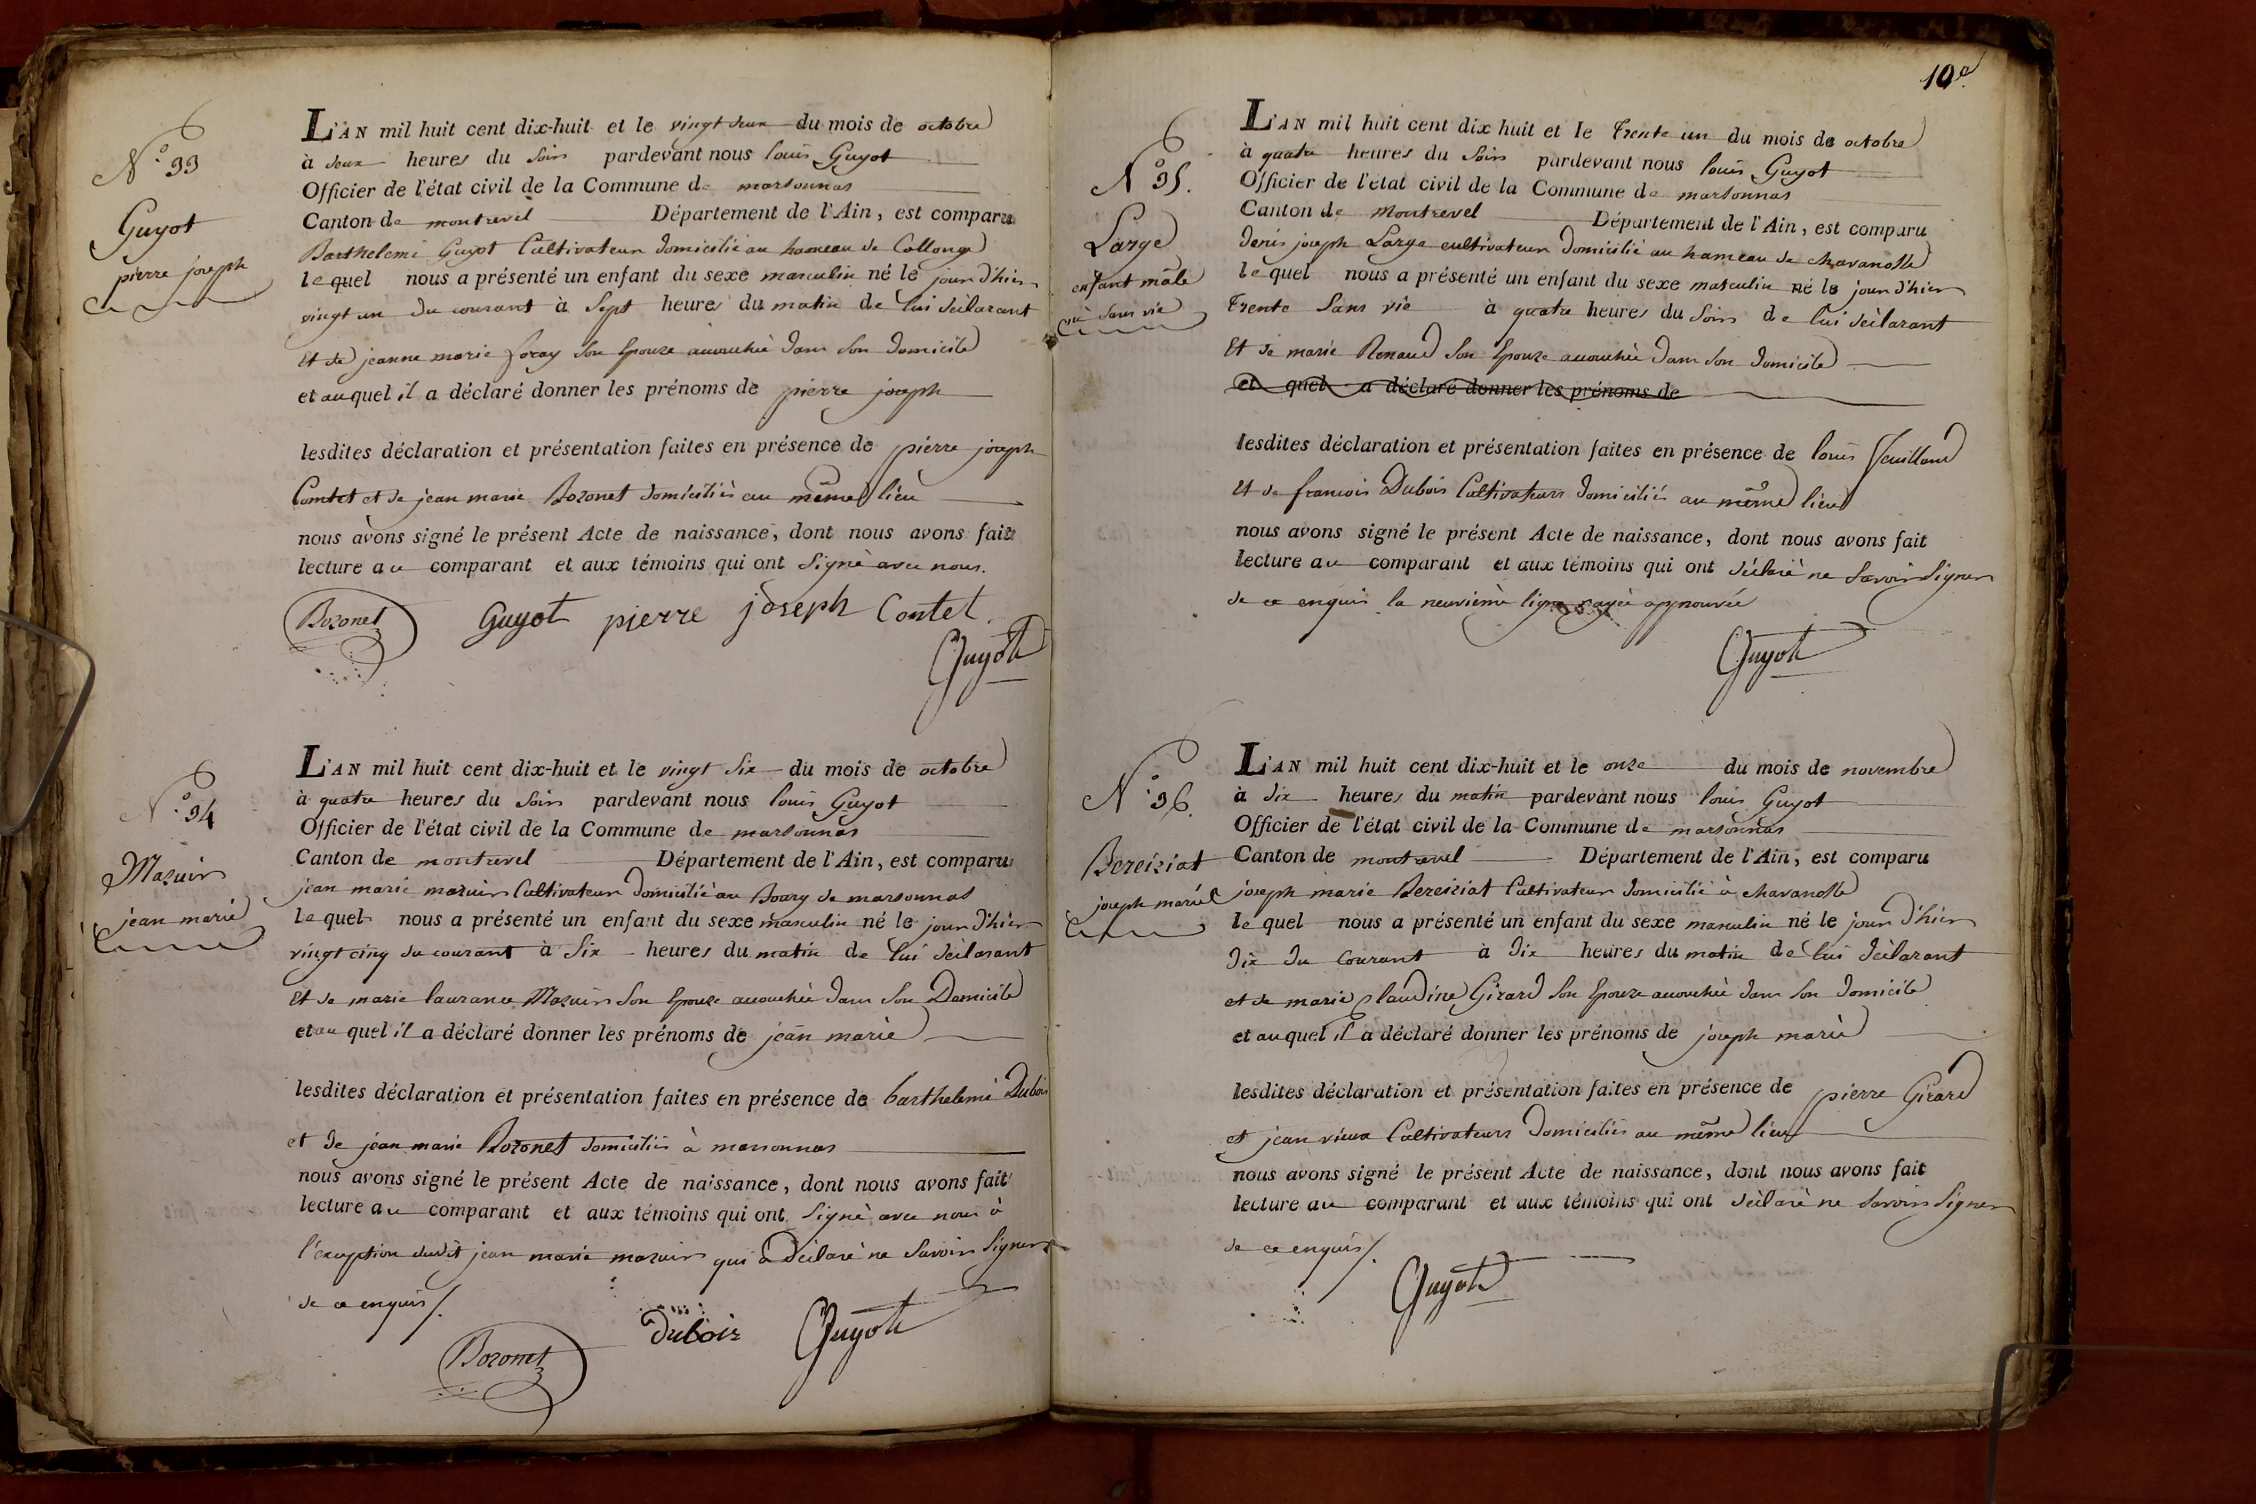 N.° 33
Guyot
pierre joseph
L'AN mil huit cent dix-huit et le vingt deux du mois de octobre
à deux heures du soir pardevant nous louis Guyot
Officier de l'état civil de la Commune de marsonnas
Canton de montrevel Département de l'Ain, est comparu
Barthelemi Guyot Cultivateur domicilié au hameau de Collonge
lequel nous a présenté un enfant du sexe masculin né le jour d'hier
vingt un du courant à Sept heures du matin de lui déclarant
Et de jeanne marie foray Son Epouse accouchée dans Son domicile
et auquel il a déclaré donner les prénoms de pierre joseph
lesdites déclaration et présentation faites en présence de pierre joseph
Contet et de jean marie Bozonet domiciliés au même lieu
nous avons signé le présent Acte de naissance, dont nous avons fait
lecture au comparant et aux témoins qui ont Signé avec nous.
Bozonet Guyot pierre joseph Contet.
Guyot
N.° 34
Mazuir
jean marie
L'AN mil huit cent dix-huit et le vingt Six du mois de octobre
à quatre heures du Soir pardevant nous louis Guyot
Officier de l'état civil de la Commune de marsonnas
Canton de montrevel Département de l'Ain, est comparu
jean marie mazuir Cultivateur domicilié au Bourg de marsonnas
lequel nous a présenté un enfant du sexe masculin né le jour d'hier
vingt cinq du courant à Six heures du matin de lui déclarant
Et de marie laurance Mazuir Son Epouse accouchée dans Son Domicile
et auquel il a déclaré donner les prénoms de jean marie
lesdites déclaration et présentation faites en présence de barthelemi Dubois
et de jean marie Bozonet domiciliés à marsonnas
nous avons signé le présent Acte de naissance, dont nous avons fait
lecture au comparant et aux témoins qui ont Signé avec nous à
l'exception dudit jean marie mazuir qui a Déclaré ne Savoir Signer
de ce enquis /.
Bozonet dubois Guyot
10e.
N° 35.
Large
enfant mâle
né Sans vie
L'AN mil huit cent dix huit et le Trente un du mois de octobre
à quatre heures du Soir pardevant nous louis Guyot
Officier de l'état civil de la Commune de marsonnas
Canton de Montrevel Département de l'Ain, est comparu
denis joseph Large cultivateur domicilié au hameau de chavanolle
lequel nous a présenté un enfant du sexe masculin né le jour d'hier
Trente Sans vie à quatre heures du Soir de lui déclarant
Et de marie Renaud Son Epouse accouchée dans Son domicile
et quel a déclaré donner les prénoms de
lesdites déclaration et présentation faites en présence de louis feuilland
Et de francois Dubois Cultivateurs domiciliés au même lieu
nous avons signé le présent Acte de naissance, dont nous avons fait
lecture au comparant et aux témoins qui ont déclaré ne Savoir Signer
de ce enquis la neuvième ligne rayée approuvée
Guyot
N.° 36.
Bereiziat
joseph marie
L'AN mil huit cent dix-huit et le onze du mois de novembre
à dix heures du matin pardevant nous louis Guyot
Officier de l'état civil de la Commune de marsonnas
Canton de montrevel Département de l'Ain, est comparu
joseph marie Bereiziat Cultivateur domicilié à chavanolle
lequel nous a présenté un enfant du sexe masculin né le jour d'hier
dix du Courant à Dix heures du matin de lui déclarant
et de marie Claudine Girard Son Epouse accouchée dans Son domicile
et auquel il a déclaré donner les prénoms de joseph marie
lesdites déclaration et présentation faites en présence de pierre Girard
et jean vieux Cultivateurs domiciliés au même lieu
nous avons signé le présent Acte de naissance, dont nous avons fait
lecture au comparant et aux témoins qui ont déclaré ne Savoir Signer
de ce enquis /.
Guyot